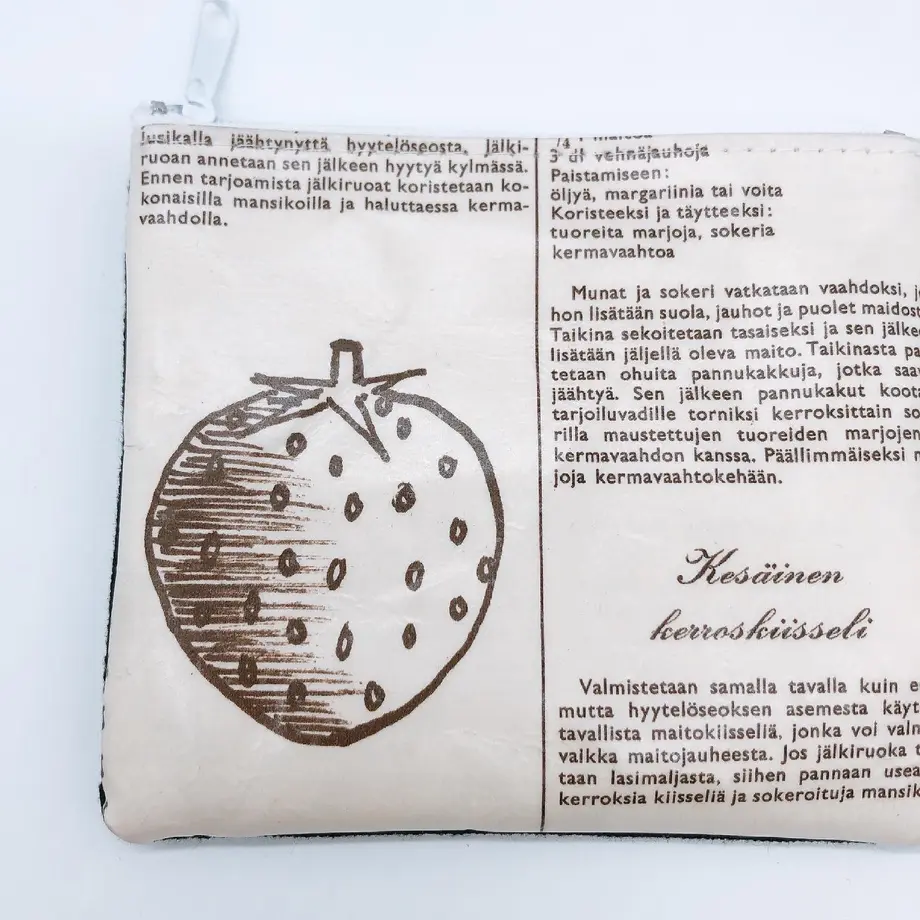 lusikalla jäähtynyttä hyytelöseosta. Jälki-
ruoan annetaan sen jälkeen hyytyä kylmässä.
Ennen tarjoamista jälkiruoat koristetaan ko-
konaisilla mansikoilla ja haluttaessa kerma-
vaahdolla.
3 dl vehnäjauhoja
Paistamiseen:
öljyä, margariinia tai voita
Koristeeksi ja täytteeksi:
tuoreita marjoja, sokeria
kermavaahtoa
Munat ja sokeri vatkataan vaahdoksi,
hon lisätään suola, jauhot ja puolet
Taikina sekoitetaan tasaiseksi ja sen
lisätään jäljellä oleva maito. Taikinasta
tetaan ohuita pannukakkuja, jotka
jäähtyä. Sen jälkeen pannukakut
tarjoiluvadille torniksi kerroksittain
rilla maustettujen tuoreiden
kermavaahdon kanssa. Päällimmäiseksi
joja kermavaahtokehään.
Kesäinen
kerroskiisseli
Valmistetaan samalla tavalla kuin
mutta hyytelöseoksen asemesta
tavallista maitokiisseliä, jonka voi
vaikka maitojauheesta. Jos jälkiruoka
taan lasimaljasta, siihen pannaan
kerroksia kiisseliä ja sokeroituja